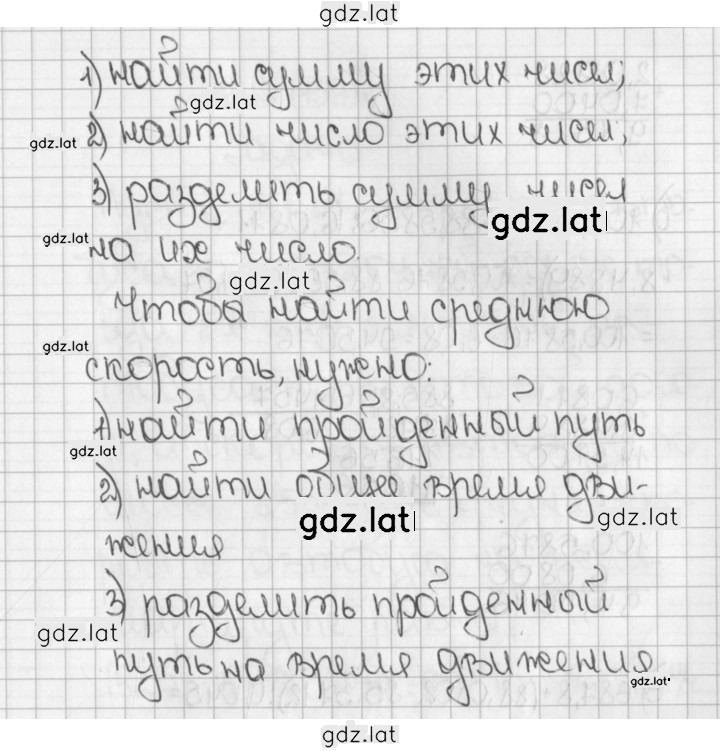 gdz.lat
1) найти сумму этих чисел;
gdz.lat
2) найти число этих чисел;
gdz.lat
3) разделить сумму чисел
gdz.lat
на их число.
gdz.lat
gdz.lat
Чтобы найти среднюю
gdz.lat
скорость, нужно:
1) найти пройденный путь
gdz.lat
2) найти общее время дви-
gdz.lat
gdz.lat
жения
3) разделить пройденный
gdz.lat
путь на время движения.
gdz.lat
gdz.lat